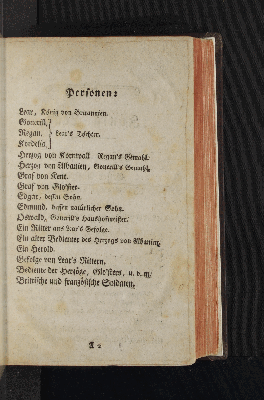 Personen:
Lear, König von Britannien.
Goneril,
Regan, Lear's Töchter.
Kordelia,
Herzog von Kornwall, Regan's Gemahl.
Herzog von Albanien, Goneril's Gemahl.
Graf von Kent.
Graf von Gloster.
Edgar, dessen Sohn.
Edmund, dessen natürlicher Sohn.
Oswald, Goneril's Haushofmeister.
Ein Ritter aus Lear's Gefolge.
Ein alter Bedienter des Herzogs von Albanien.
Ein Herold.
Gefolge von Lear's Rittern.
Bediente der Herzöge, Glosters, u. d. m.
Britische und französische Soldaten.
A 2